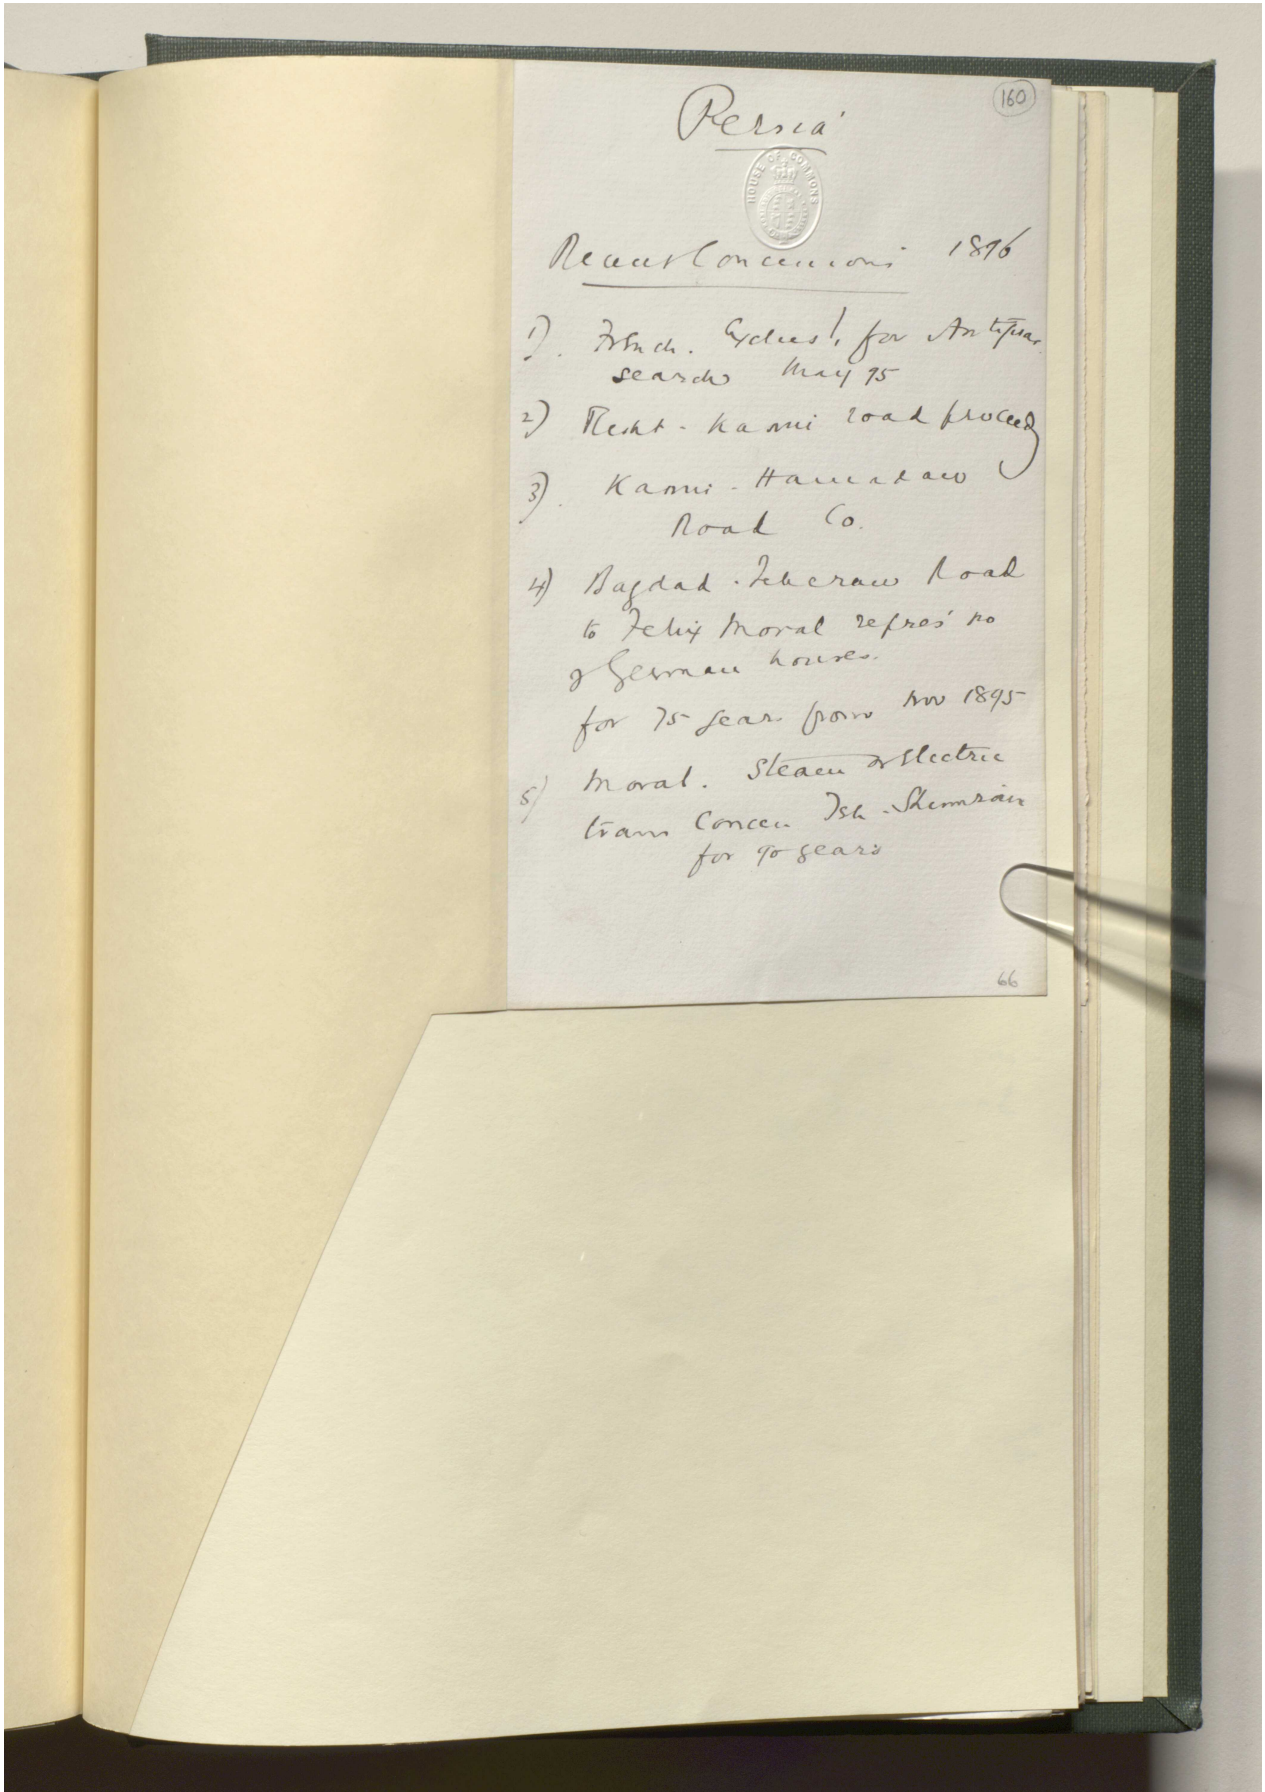 160
Persia
HOUSE OF COMMONS
Recent Concessions 1896
1). French. Exclus!. for Antiquar.
search May 95
2) Resht - Kasvin road proceedg
3). Kasvin - Hamadan
Road Co.
4) Bagdad - Teheran Road
to Felix Moral repres'
of German houses.
for 75 years from Nov 1895
5) Moral. Steam or Electric
tram Concen Teh - Shimran
for 90 years
66